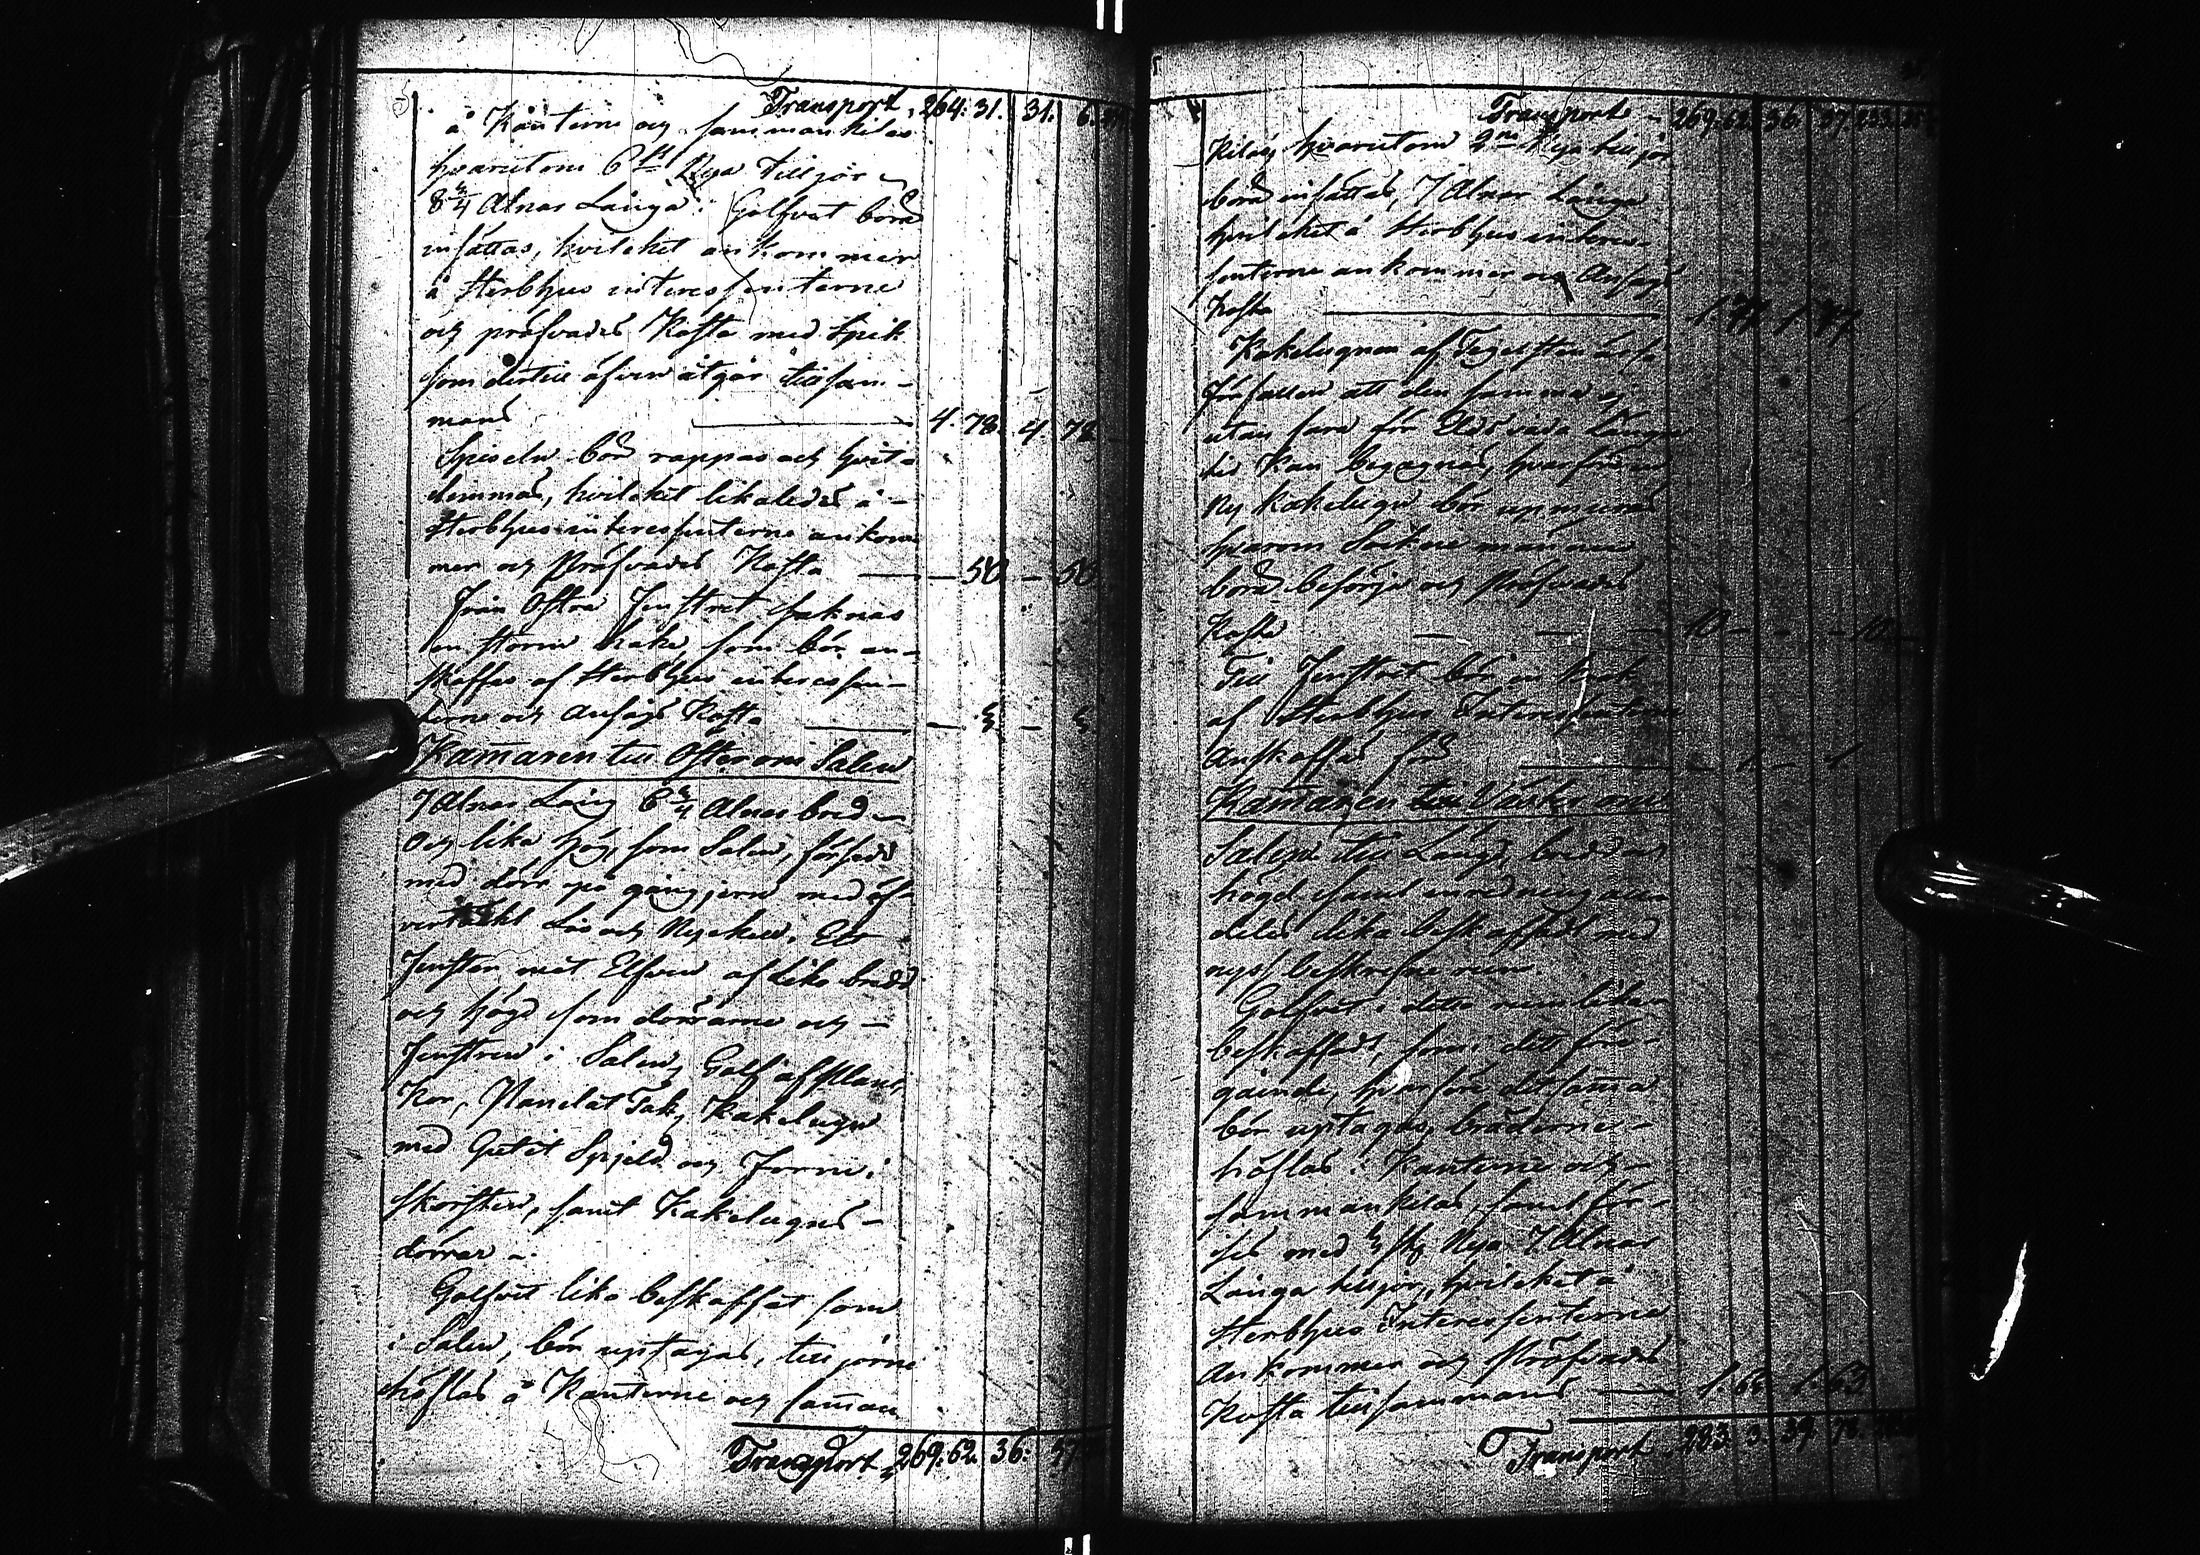 Transport, 264. 31. 31. 6.
å Kanterne och sammankilas
hvarutom 6 st Nya tilljor
8 3/4 Alnar Långa i Golfvet böra
insättas, hvilcket ankommer
å Sterbhus interessenterne
och pröfvades Kosta med Spik
som dertill äfven åtgår tillsam-
mans 4. 78. 4. 78
Spiseln bör rappas och hvit-
limmas, hvilcket likaledes å
Sterbhus interessenterne ankom-
mer och Pröfvades Kosta — 50 — 50
Från Östra Fenstret saknas
en storm hake som bör an-
skaffas af Sterbhus interessen-
terne och Ansågs Kosta — 3 — 3
Kamaren till Öster om Salen
7 Alnar Lång 6 3/4 Alnar bred
Och lika hög, som Salen, försedd
med dörr på gångjern med öf-
vertäckt Lås och Nyckel, Ett
Fenster mot Elfven af lika bredd
och högd som dörrarne och
Fenstren i Salen, Golf af Plan-
kor, Panelat Tak, Kakelugn
med Gutit Spjeld och Form i
skorsten, samt Kakelugns-
dörrar.
Golfvet lika beskaffat som
i Salen, bör uptagas, tilljorne
höflas å Kanterne och samman
Transport 269. 62. 36. 37
Transport 269. 62. 36. 37
kilas hvarutom 2ne Nya tilljor
böra insättas, 7 Alnar Långa
hvilcket å Sterbhus interes-
senterne ankommer och Ansågs
Kosta 1 77 1 77
Kakelugnen af Tegelsten är så
förfallen att den samma ej
utan fara för Eldsvåda Längre
tid Kan begagnas, hvarföre en
Ny Kakelugn bör upmuras
hvarom Socknemännen
böra besörja och Pröfvades
Kosta 10 — — — 10
Till Fenstret bör en hake
af Sterbhus Interessenterne
Anskaffas för — 1 — 1
Kamaren till Väster om
Salen till Längd, bredd och
högd samt inredning alle-
deles lika beskaffad med
nyss beskrefne rum
Golfvet i detta rum lika
beskaffadt, som i det före-
gående, hvarföre detsamma
bör uptagas, bräderne
höflas i Kanterne och
sammankilas, samt för-
ses med 3 st Nya 7 Alnar
Långa tilljor, hvilcket å
Sterbhus Interessenterne
ankommer och Pröfvades
Kosta tillsammans 1. 63 1. 63
Transport 283. 3. 39. 78.